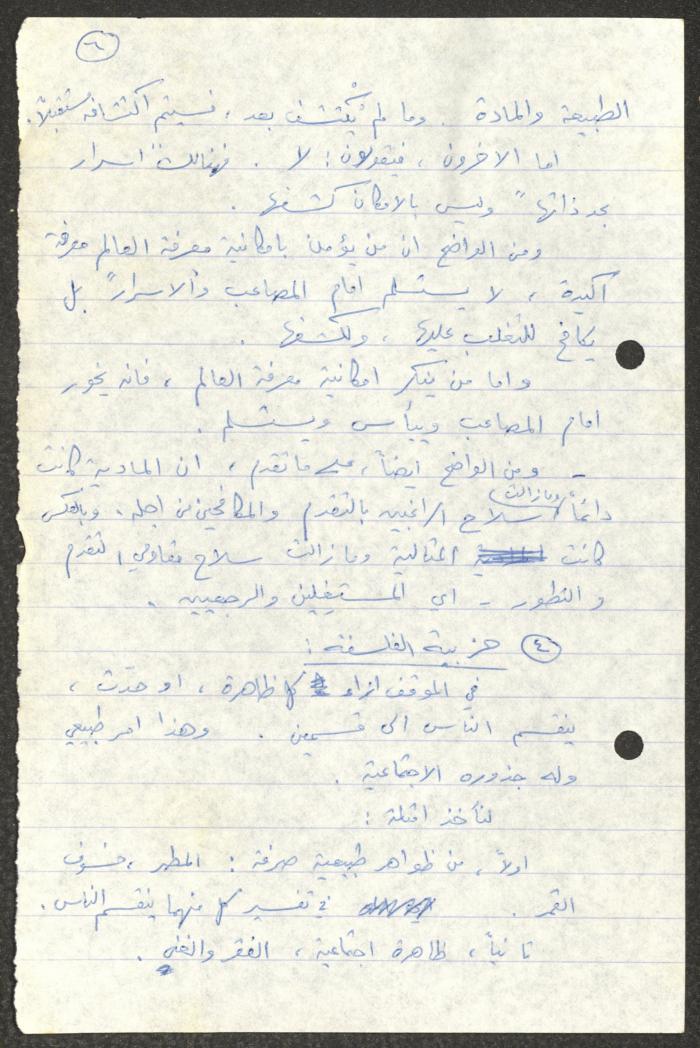 ٦
الطبيعة والمادة . وما لم يُكتشف بعد ، فسيتم اكتشافه مستقبلاً .
اما الاخرون ، فيقولون : لا . فهنالك " اسرار
بحد ذاتها " وليس بالامكان كشفها .
ومن الواضح ان من يؤمن بامكانية معرفة العالم معرفة
اكيدة ، لا يستسلم امام المصاعب و"الاسرار" بل
يكافح للتغلب عليها ، ولكشفها .
واما من ينكر امكانية معرفة العالم ، فانه يخور
امام المصاعب وييأس ويستسلم .
- ومن الواضح ايضاً ، على ما تقدم ، ان المادية كانت
دائماً ( وما زالت ) سلاح الراغبين بالتقدم والمكافحين من اجله . وبالعكس
كانت المثالية وما زالت سلاح مقاومي التقدم
والتطور - اي المستغِلين والرجعيين .
٤ حزبية الفلسفة :
في الموقف ازاء كل ظاهرة ، او حدث ،
ينقسم الناس الى قسمين . وهذا امر طبيعي
وله جذوره الاجتماعية .
لنأخذ امثلة :
اولاً ، من ظواهر طبيعية صرفة : المطر ، خسوف
القمر . في تفسير كل منهما ينقسم الناس .
ثانياً ، ظاهرة اجتماعية ، الفقر والغنى .